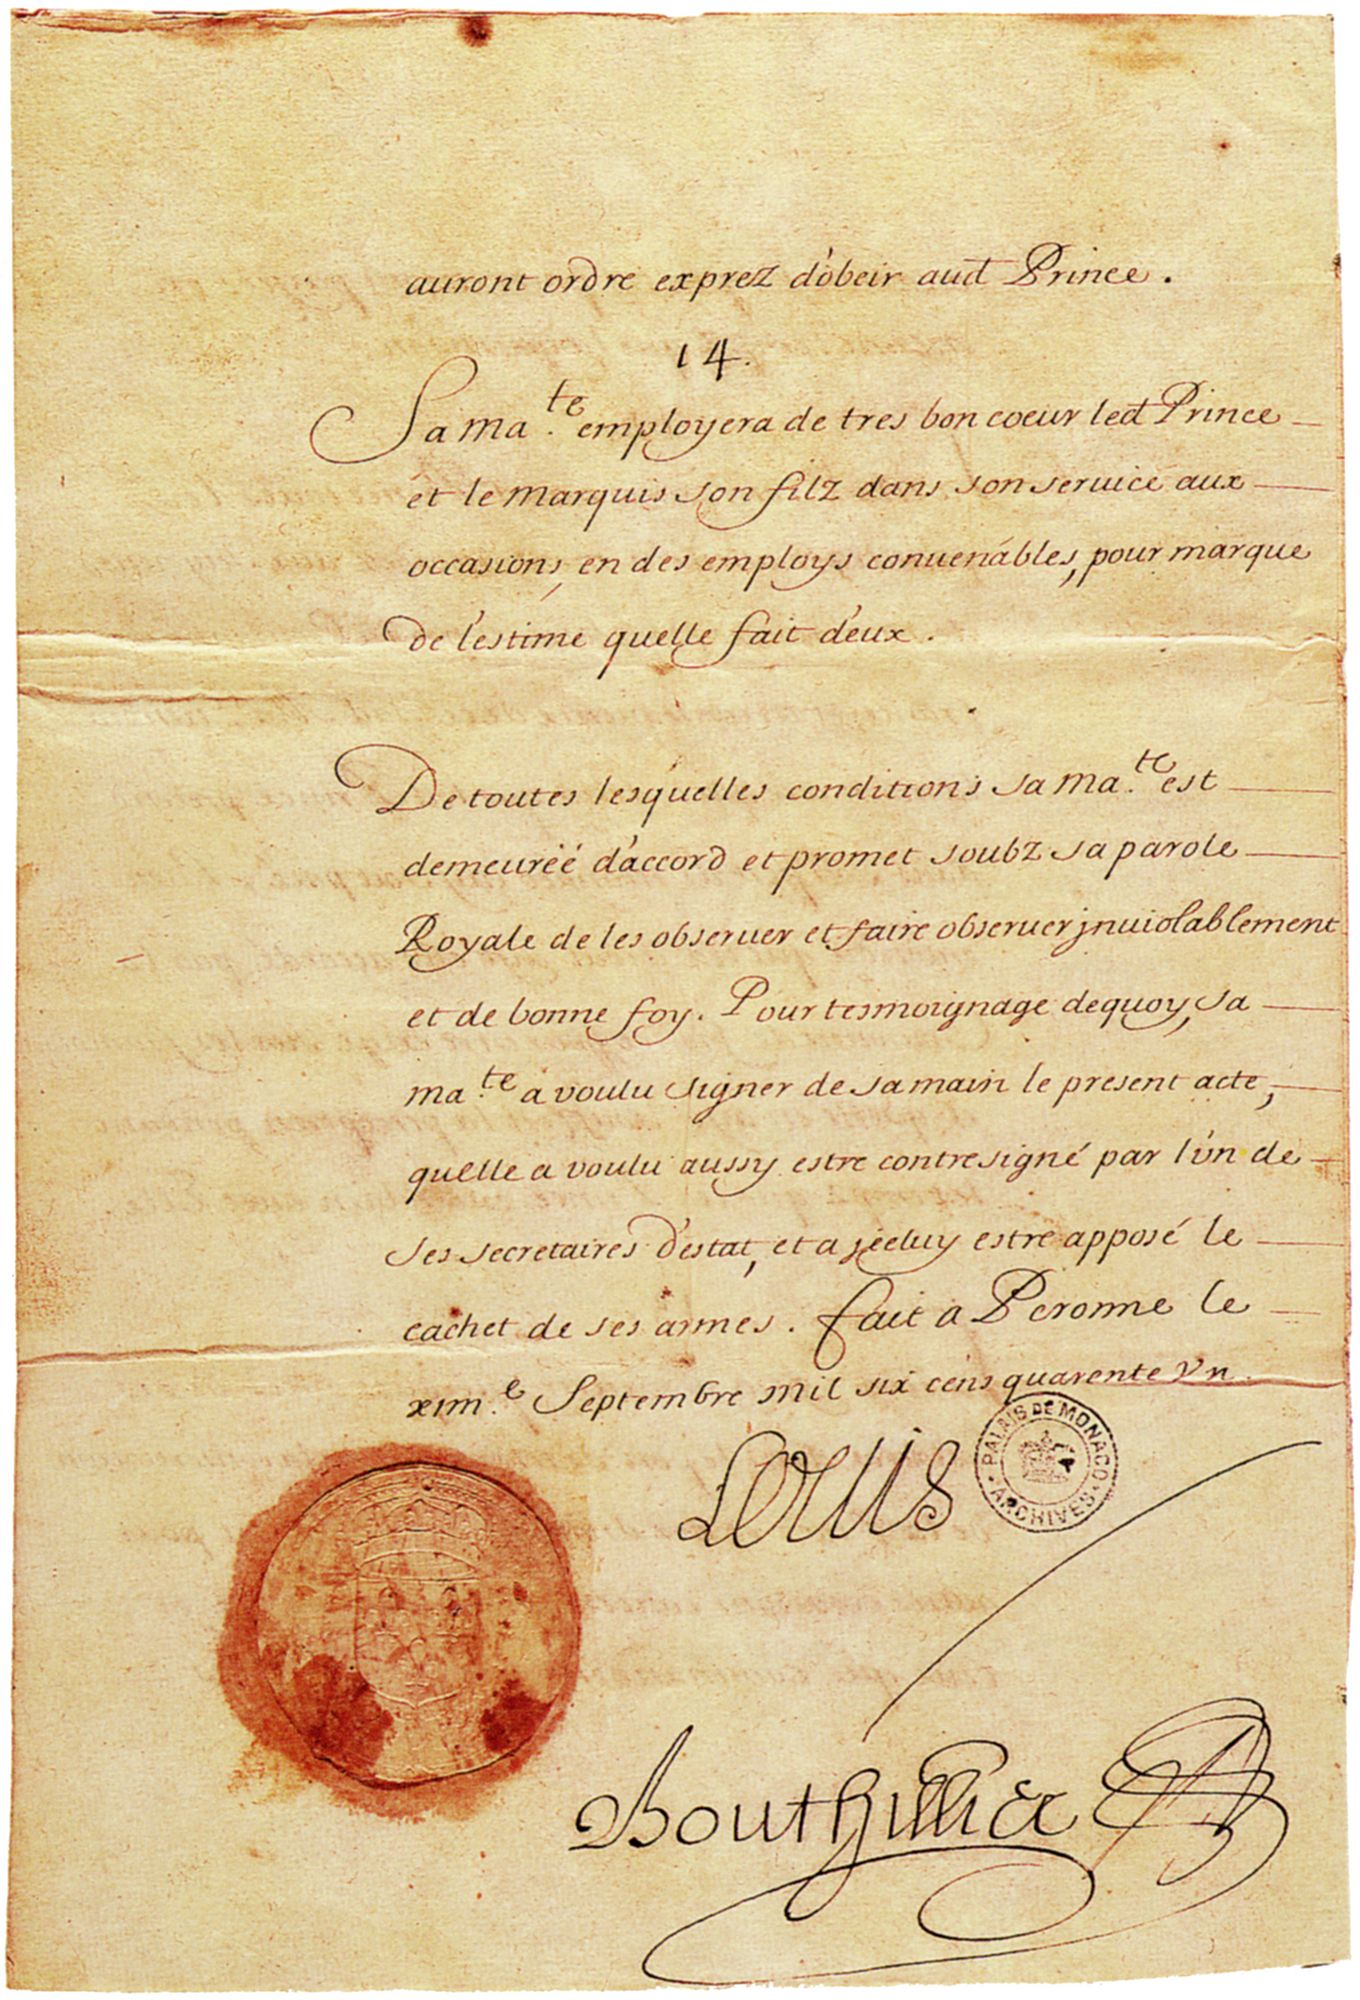 auront ordre exprez d'obeir aud Prince.
14.
Sa Ma.te employera de tres bon coeur led Prince
et le Marquis son filz dans son seruice aux
occasions, en des employs conuenables, pour marque
de l'estime quelle fait d'eux.
De toutes lesquelles conditions sa Ma.te est
demeuréé d'accord et promet soubz sa parole
Royale de les obseruer et faire obseruer jnuiolablement
et de bonne foy. Pour tesmoignage dequoy, sa
Ma.te a voulu signer de sa main le present acte,
quelle a voulu aussy estre contresigné par l'un de
ses secretaires d'estat, et a jceluy estre apposé le
cachet de ses armes. fait a Peronne le
xiiii.e Septembre mil six cens quarente vn
Louis
PALAIS DE MONACO
ARCHIVES
Bouthillier